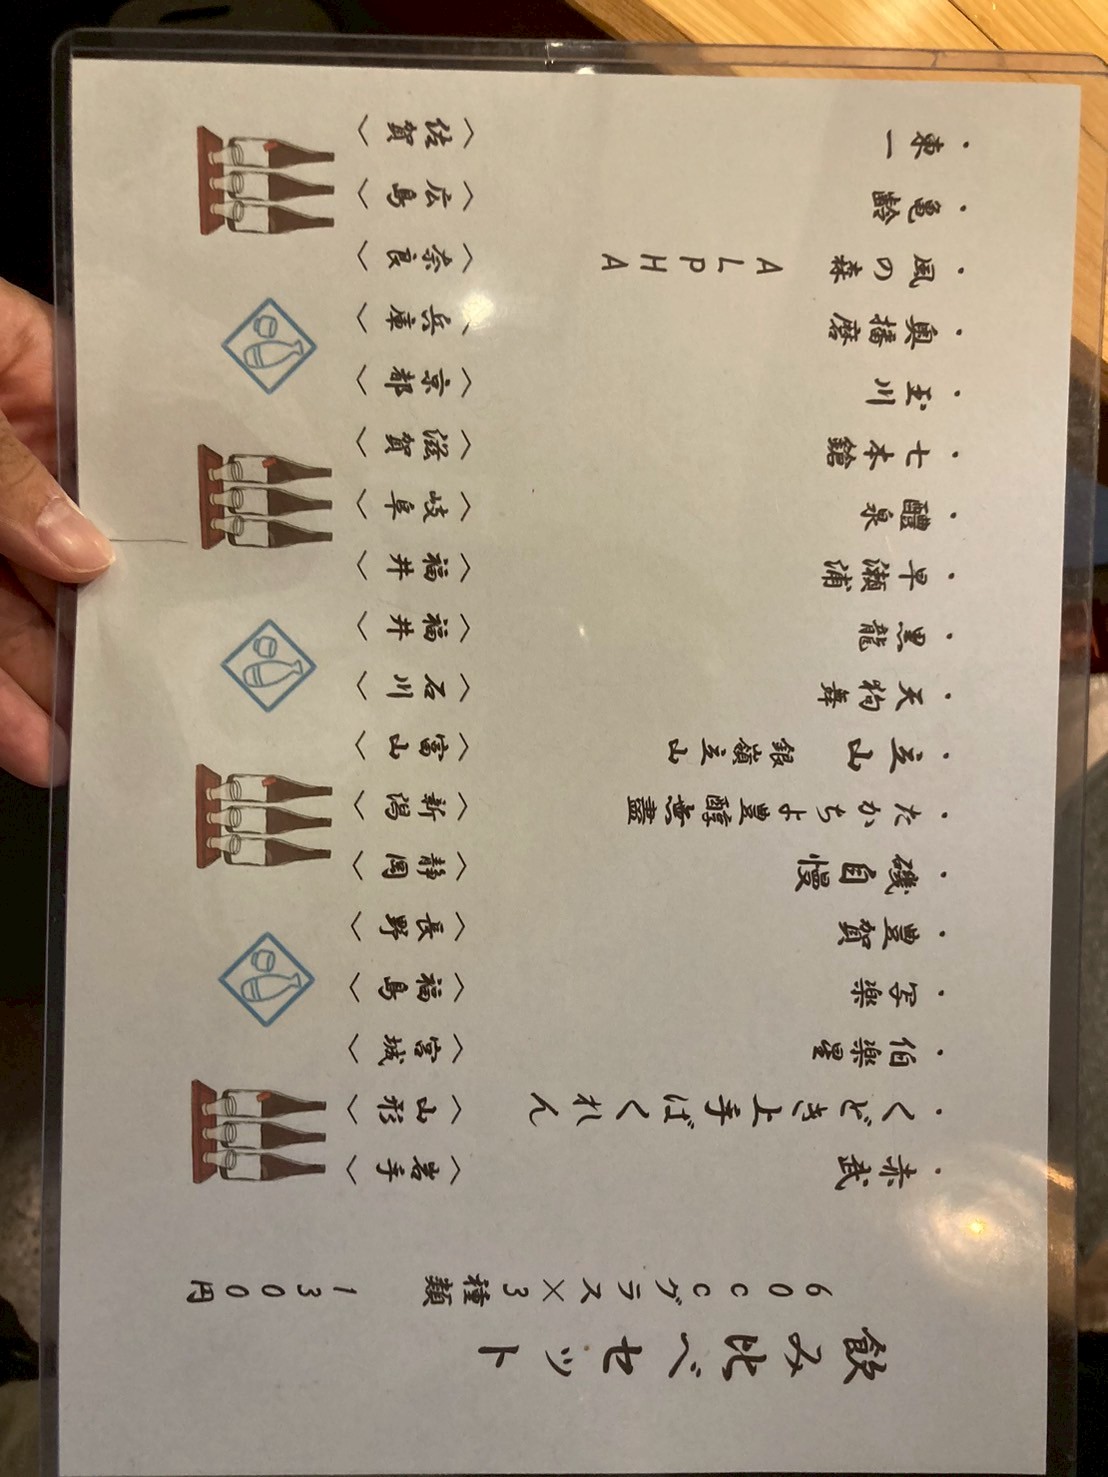 飲み比べセット
60ccグラス×3種類 1300円
・赤武 〈岩手〉
・くどき上手ばくれん 〈山形〉
・伯楽星 〈宮城〉
・写楽 〈福島〉
・豊賀 〈長野〉
・磯自慢 〈静岡〉
・たかちよ豊醇無盡 〈新潟〉
・立山 銀嶺立山 〈富山〉
・天狗舞 〈石川〉
・黒龍 〈福井〉
・早瀬浦 〈福井〉
・醴泉 〈岐阜〉
・七本鎗 〈滋賀〉
・玉川 〈京都〉
・奥播磨 〈兵庫〉
・風の森 ALPHA 〈奈良〉
・亀齢 〈広島〉
・東一 〈佐賀〉